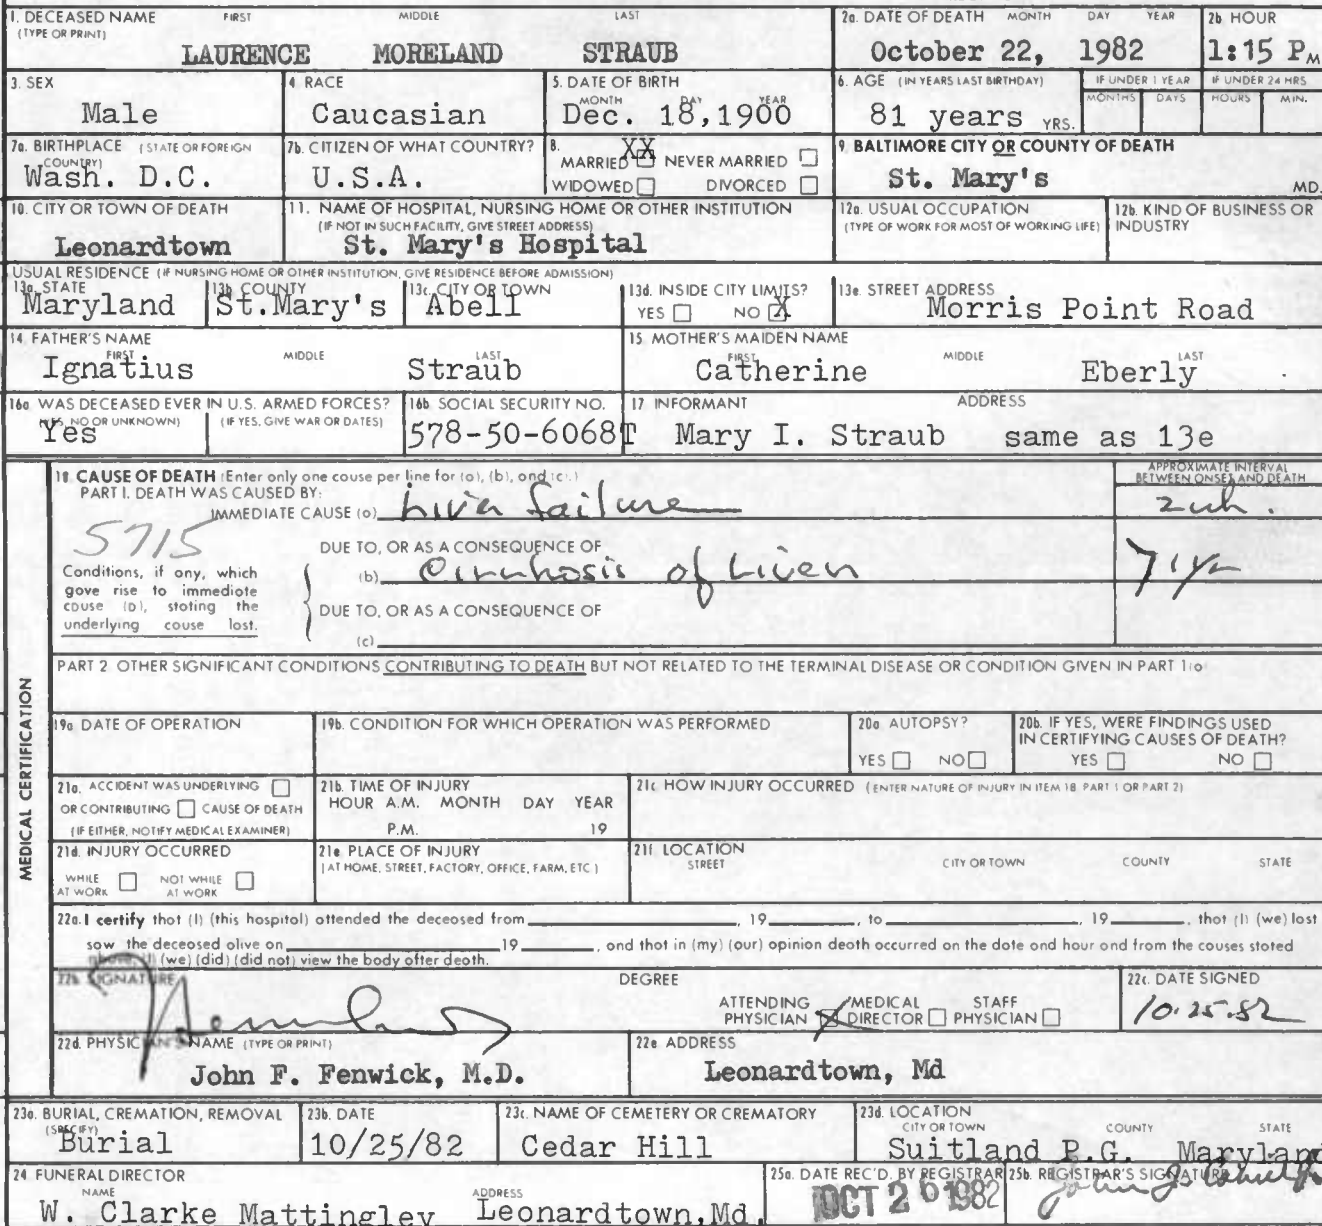 1. DECEASED NAME FIRST MIDDLE LAST
(TYPE OR PRINT)
LAURENCE MORELAND STRAUB
2a. DATE OF DEATH MONTH DAY YEAR
October 22, 1982
2b. HOUR
1:15 P M
3. SEX
Male
4. RACE
Caucasian
5. DATE OF BIRTH
MONTH DAY YEAR
Dec. 18,1900
6. AGE (IN YEARS LAST BIRTHDAY)
81 years YRS.
IF UNDER 1 YEAR
MONTHS DAYS
IF UNDER 24 HRS
HOURS MIN.
7a. BIRTHPLACE (STATE OR FOREIGN
COUNTRY)
Wash. D.C.
7b. CITIZEN OF WHAT COUNTRY?
U.S.A.
8.
MARRIED XX NEVER MARRIED
WIDOWED DIVORCED
9. BALTIMORE CITY OR COUNTY OF DEATH
St. Mary's
MD.
10. CITY OR TOWN OF DEATH
Leonardtown
11. NAME OF HOSPITAL, NURSING HOME OR OTHER INSTITUTION
(IF NOT IN SUCH FACILITY, GIVE STREET ADDRESS)
St. Mary's Hospital
12a. USUAL OCCUPATION
(TYPE OF WORK FOR MOST OF WORKING LIFE)
12b. KIND OF BUSINESS OR
INDUSTRY
USUAL RESIDENCE (IF NURSING HOME OR OTHER INSTITUTION, GIVE RESIDENCE BEFORE ADMISSION)
13a. STATE
Maryland
13b. COUNTY
St.Mary's
13c. CITY OR TOWN
Abell
13d. INSIDE CITY LIMITS?
YES NO X
13e. STREET ADDRESS
Morris Point Road
14. FATHER'S NAME
FIRST MIDDLE LAST
Ignatius Straub
15. MOTHER'S MAIDEN NAME
FIRST MIDDLE LAST
Catherine Eberly
16a. WAS DECEASED EVER IN U.S. ARMED FORCES?
(YES, NO OR UNKNOWN) (IF YES, GIVE WAR OR DATES)
Yes
16b. SOCIAL SECURITY NO.
578-50-6068T
17. INFORMANT ADDRESS
Mary I. Straub same as 13e
MEDICAL CERTIFICATION
18. CAUSE OF DEATH (Enter only one cause per line for (a), (b), and (c).)
PART I. DEATH WAS CAUSED BY:
APPROXIMATE INTERVAL
BETWEEN ONSET AND DEATH
IMMEDIATE CAUSE (a) Liver failure
5715
DUE TO, OR AS A CONSEQUENCE OF
(b) Cirrhosis of Liver
Conditions, if any, which
gave rise to immediate
cause (a), stating the
underlying cause last.
DUE TO, OR AS A CONSEQUENCE OF
(c)
PART 2 OTHER SIGNIFICANT CONDITIONS CONTRIBUTING TO DEATH BUT NOT RELATED TO THE TERMINAL DISEASE OR CONDITION GIVEN IN PART 1(a)
19a. DATE OF OPERATION
19b. CONDITION FOR WHICH OPERATION WAS PERFORMED
20a. AUTOPSY?
YES NO
20b. IF YES, WERE FINDINGS USED
IN CERTIFYING CAUSES OF DEATH?
YES NO
21a. ACCIDENT WAS UNDERLYING
OR CONTRIBUTING CAUSE OF DEATH
(IF EITHER, NOTIFY MEDICAL EXAMINER)
21b. TIME OF INJURY
HOUR A.M. MONTH DAY YEAR
P.M. 19
21c. HOW INJURY OCCURRED (ENTER NATURE OF INJURY IN ITEM 18 PART 1 OR PART 2)
21d. INJURY OCCURRED
WHILE AT WORK NOT WHILE AT WORK
21e. PLACE OF INJURY
(AT HOME, STREET, FACTORY, OFFICE, FARM, ETC)
21f. LOCATION
STREET CITY OR TOWN COUNTY STATE
22a. I certify that (I) (this hospital) attended the deceased from 19 , to , 19 , that (I) (we) last
saw the deceased alive on 19 , and that in (my) (our) opinion death occurred on the date and hour and from the causes stated
above. (I) (we) (did) (did not) view the body after death.
22b. SIGNATURE DEGREE
ATTENDING PHYSICIAN X MEDICAL DIRECTOR STAFF PHYSICIAN
22c. DATE SIGNED
10.25.82
22d. PHYSICIAN'S NAME (TYPE OR PRINT)
John F. Fenwick, M.D.
22e. ADDRESS
Leonardtown, Md
23a. BURIAL, CREMATION, REMOVAL
(SPECIFY)
Burial
23b. DATE
10/25/82
23c. NAME OF CEMETERY OR CREMATORY
Cedar Hill
23d. LOCATION
CITY OR TOWN COUNTY STATE
Suitland P.G. Maryland
24. FUNERAL DIRECTOR
NAME ADDRESS
W. Clarke Mattingley Leonardtown,Md.
25a. DATE REC'D. BY REGISTRAR
OCT 26 1982
25b. REGISTRAR'S SIGNATURE